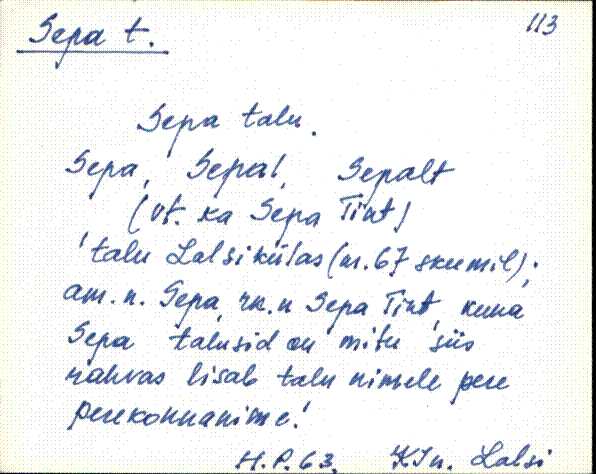 113
Sepa t.
Sepa talu.
Sepa, Sepal, Sepalt
(vt. ka Sepa Tint)
'talu Lalsi külas (n. 67 skeemil);
am. n. Sepa, rn. n Sepa Tint, kuna
Sepa talusid on mitu siis
rahvas lisab talu nimele pere
perekonnanime.'
H.P. 63. KJn. Lalsi